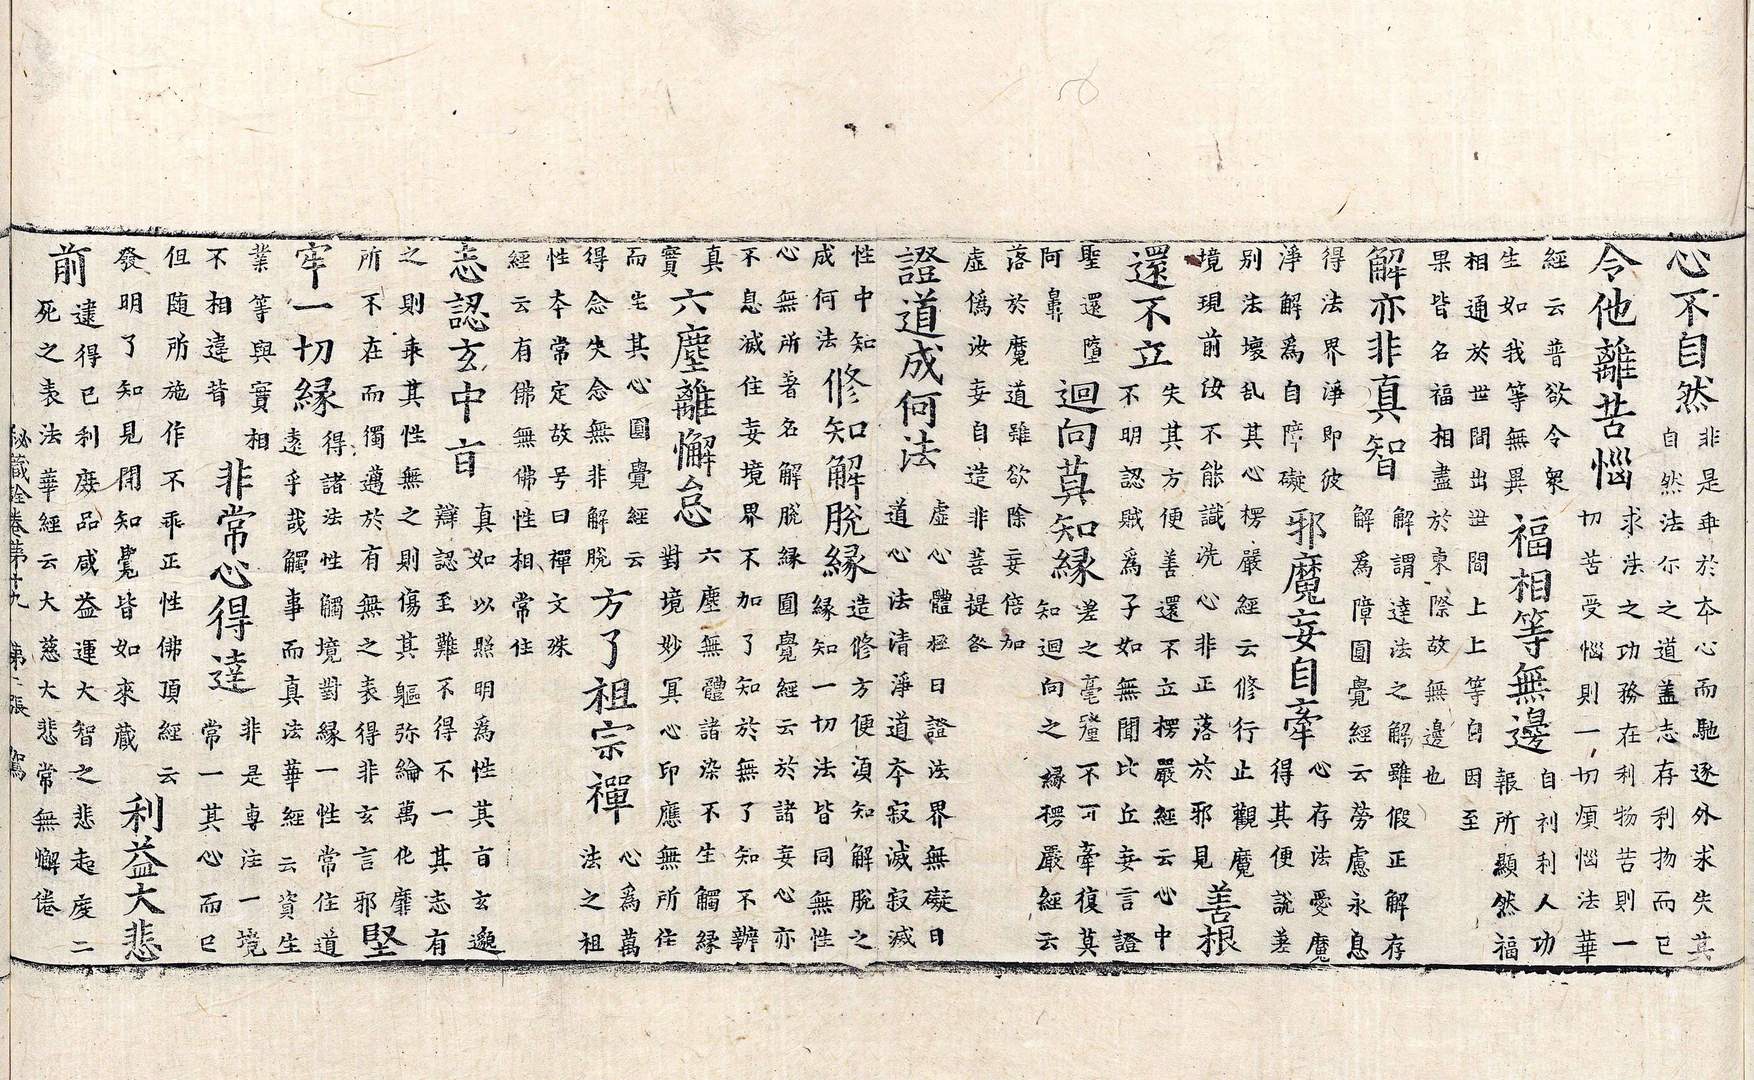 心不自然
非是乖於夲心而馳逐外求失其
自然法尓之道盖志存利物而已
令他離苦惱
求法之功務在利物苦則一
切苦受惱則一切煩惱法華
經云普欲令衆
生如我等無異
福相等無邊
自利利人功
報所顯然福
相通於世間出世間上上等自因至
果皆名福相盡於東際故無邊也
解亦非真智
解謂達法之解雖假正解存
解爲障圓覺經云勞慮永息
得法界淨即彼
淨解爲自障礙
邪魔妄自牽
心存法愛魔
得其便說差
別法壞乱其心楞嚴經云修行止觀魔
境現前汝不能識洗心非正落於邪見
善根
還不立
失其方便善還不立楞嚴經云心中
不明認賊爲子如無聞比丘妄言證
聖還墮
阿鼻
迴向莫知縁
差之毫釐不可牽復莫
知迴向之縁楞嚴經云
落於魔道雖欲除妄倍加
虛僞汝妄自造非菩提咎
證道成何法
虛心體極曰證法界無礙曰
道心法清淨道夲寂滅寂滅
性中知
成何法
修知解脫縁
造修方便須知解脫之
縁知一切法皆同無性
心無所著名解脫縁圓覺經云於諸妄心亦
不息滅住妄境界不加了知於無了知不辨
真
實
六塵離懈怠
六塵無體諸染不生觸縁
對境妙冥心印應無所住
而生其心圓覺經云
得念失念無非解脫
方了祖宗禪
心爲萬
法之祖
性夲常定故号曰禪文殊
經云有佛無佛性相常住
志認玄中旨
真如以照明爲性其旨玄邈
辯認至難不得不一其志有
之則乖其性無之則傷其軀弥綸萬化靡
所不在而獨邁於有無之表得非玄言邪
堅
牢一切縁
得諸法性觸境對縁一性常住道
遠乎哉觸事而真法華經云資生
業等與實相
不相違背
非常心得達
非是專注一境
常一其心而已
但随所施作不乖正性佛頂經云
發明了知見聞知覺皆如來藏
利益大悲
前
達得已利度品咸益運大智之悲起度二
死之表法華經云大慈大悲常無懈倦
秘藏詮卷第十九 第二張 駕